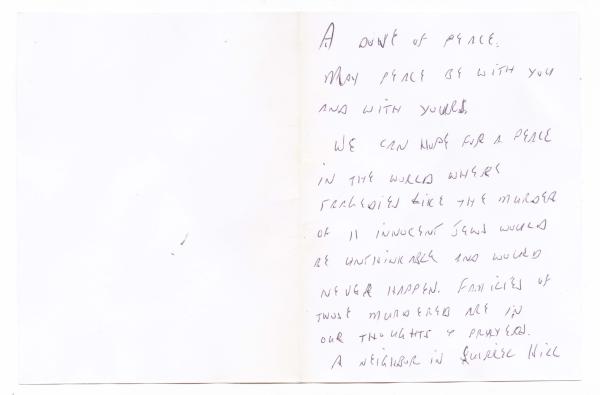 A DOVE OF PEACE.
MAY PEACE BE WITH YOU
AND WITH YOURS.
WE CAN HOPE FOR A PEACE
IN THE WORLD WHERE
TRAGEDIES LIKE THE MURDER
OF 11 INNOCENT JEWS WOULD
BE UNTHINKABLE AND WOULD
NEVER HAPPEN. FAMILIES OF
THOSE MURDERED ARE IN
OUR THOUGHTS & PRAYERS.
A NEIGHBOR IN SQUIRREL HILL